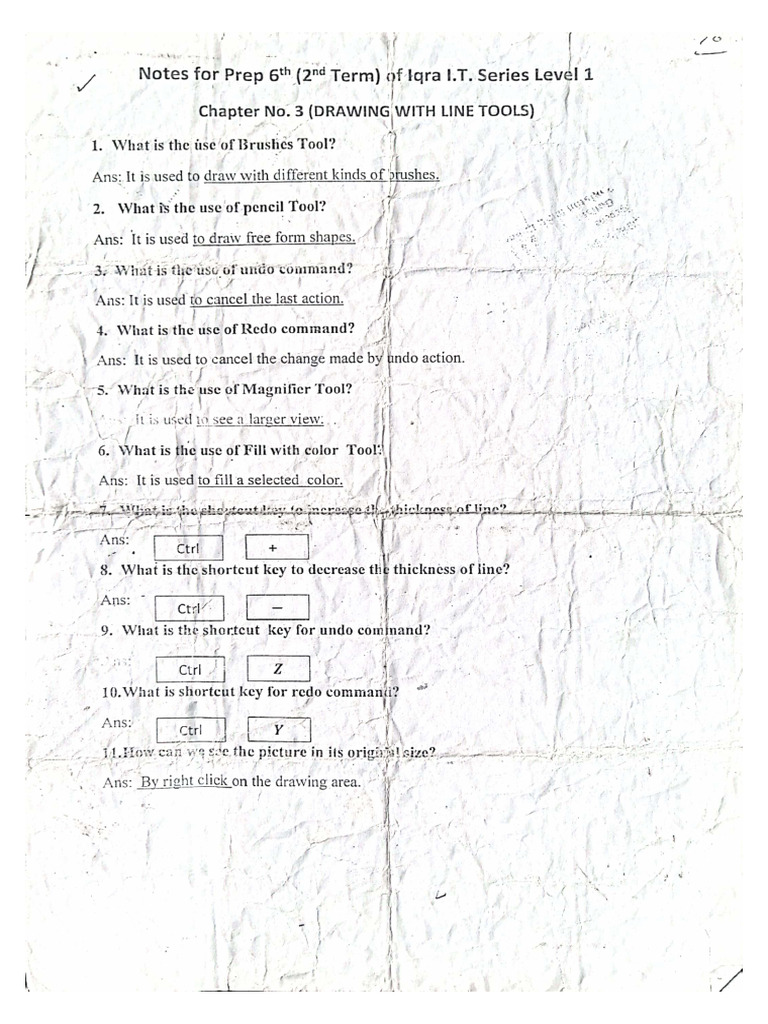 Notes for Prep 6th (2nd Term) of Iqra I.T. Series Level 1
Chapter No. 3 (DRAWING WITH LINE TOOLS)
1. What is the use of Brushes Tool?
Ans: It is used to draw with different kinds of brushes.
2. What is the use of pencil Tool?
Ans: It is used to draw free form shapes.
3. What is the use of undo command?
Ans: It is used to cancel the last action.
4. What is the use of Redo command?
Ans: It is used to cancel the change made by undo action.
5. What is the use of Magnifier Tool?
Ans: It is used to see a larger view.
6. What is the use of Fill with color Tool?
Ans: It is used to fill a selected color.
7. What is the shortcut key to increase the thickness of line?
Ans: Ctrl +
8. What is the shortcut key to decrease the thickness of line?
Ans: Ctrl —
9. What is the shortcut key for undo command?
Ans: Ctrl Z
10.What is shortcut key for redo command?
Ans: Ctrl Y
11.How can we see the picture in its original size?
Ans: By right click on the drawing area.